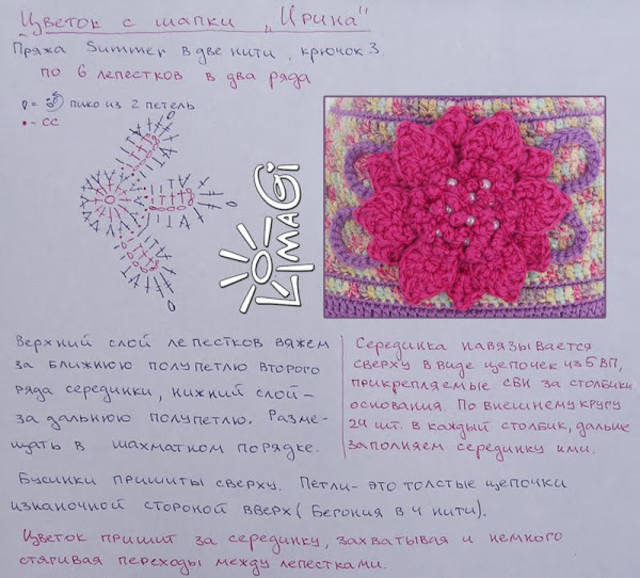 Цветок с шапки "Ирина"
Пряха Summer в две нити, крючок 3.
по 6 лепестков в два ряда
= пико из 2 петель
- СС
LIMAGI
Верхний слой лепестков вяжем
за ближнюю полупетлю второго
ряда серединки, нижний слой –
за дальнюю полупетлю. Разме-
щать в шахматном порядке.
Серединка навязывается
сверху в виде цепочек из 5 ВП,
прикрепляемые СБН за столбики
основания. По внешнему кругу
24 шт. в каждый столбик, дальше
заполняем серединку ими.
Бусинки пришиты сверху. Петли – это толстые цепочки
изнаночной стороной вверх (Бегония в 4 нити).
Цветок пришит за серединку, захватывая и немного
стягивая переходы между лепестками.